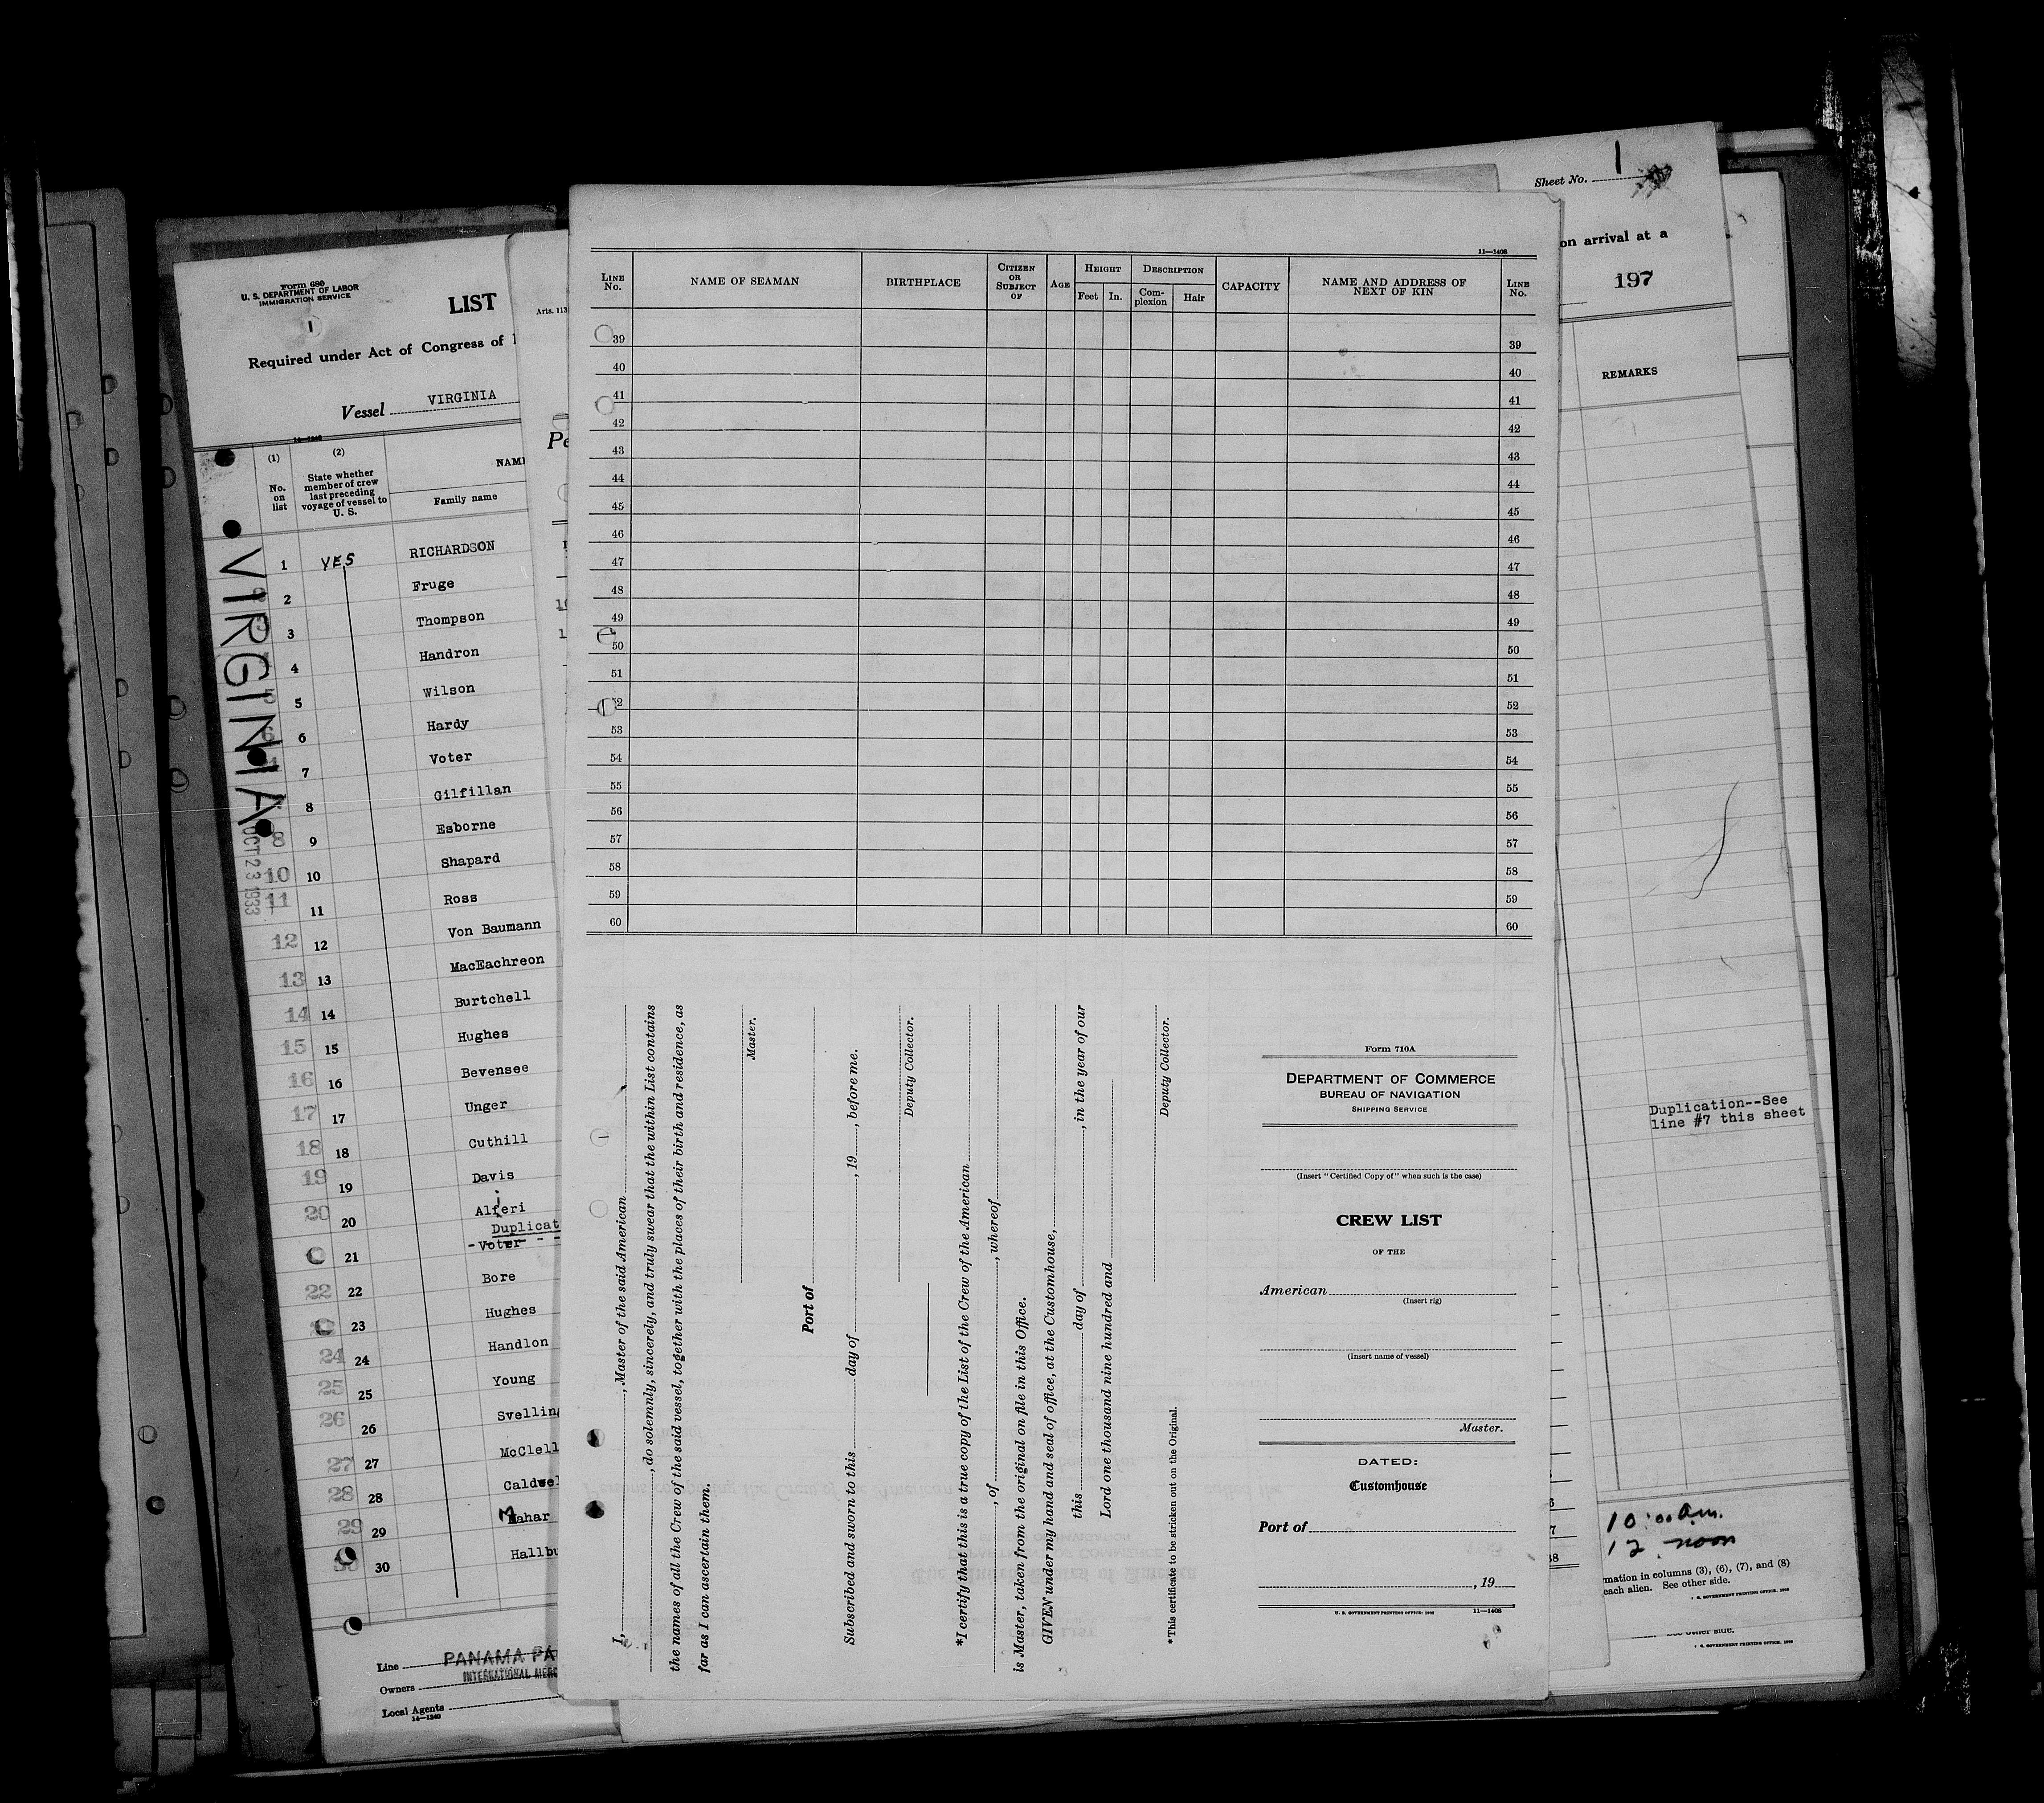 Form 680
U. S. DEPARTMENT OF LABOR
IMMIGRATION SERVICE
1
LIST
Required under Act of Congress of
Vessel VIRGINIA
14—1240
(1)
No.
on
list
(2)
State whether
member of crew
last preceding
voyage of vessel to
U. S.
Family name
VIRGINIA
OCT 23 1933
1 YES RICHARDSON
2 Fruge
3 Thompson
4 Handron
5 Wilson
6 Hardy
7 Voter
8 Gilfillan
9 Esborne
10 Shapard
11 Ross
12 Von Baumann
13 MacEachreon
14 Burtchell
15 Hughes
16 Bevensee
17 Unger
18 Cuthill
19 Davis
20 Alferi
21 Voter
22 Bore
23 Hughes
24 Handlon
25 Young
26
27
28
29 Mahar
30
Line PANAMA
INTERNATIONAL
Owners
Local Agents
14—1240
Arts. 113
11—1408
LINE
No.
NAME OF SEAMAN
BIRTHPLACE
CITIZEN
OR
SUBJECT
OF
AGE
HEIGHT
Feet In.
DESCRIPTION
Com-
plexion
Hair
CAPACITY
NAME AND ADDRESS OF
NEXT OF KIN
LINE
No.
39 39
40 40
41 41
42 42
43 43
44 44
45 45
46 46
47 47
48 48
49 49
50 50
51 51
52 52
53 53
54 54
55 55
56 56
57 57
58 58
59 59
60 60
I, , Master of the said American
, do solemnly, sincerely, and truly swear that the within List contains
the names of all the Crew of the said vessel, together with the places of their birth and residence, as
far as I can ascertain them.
Master.
Port of
Subscribed and sworn to this day of , 19 , before me.
Deputy Collector.
*I certify that this is a true copy of the List of the Crew of the American
, of , whereof
is Master, taken from the original on file in this Office.
GIVEN under my hand and seal of office, at the Customhouse,
this day of , in the year of our
Lord one thousand nine hundred and
Deputy Collector.
*This certificate to be stricken out on the Original.
Form 710A
DEPARTMENT OF COMMERCE
BUREAU OF NAVIGATION
SHIPPING SERVICE
(Insert "Certified Copy of" when such is the case)
CREW LIST
OF THE
American
(Insert rig)
(Insert name of vessel)
Master.
DATED:
Customhouse
Port of
, 19
U. S. GOVERNMENT PRINTING OFFICE: 11—1408
Sheet No. 1
on arrival at a
197
REMARKS
Duplication--See
line #7 this sheet
10:00 a.m.
12 noon
in columns (3), (6), (7), and (8)
each alien. See other side.